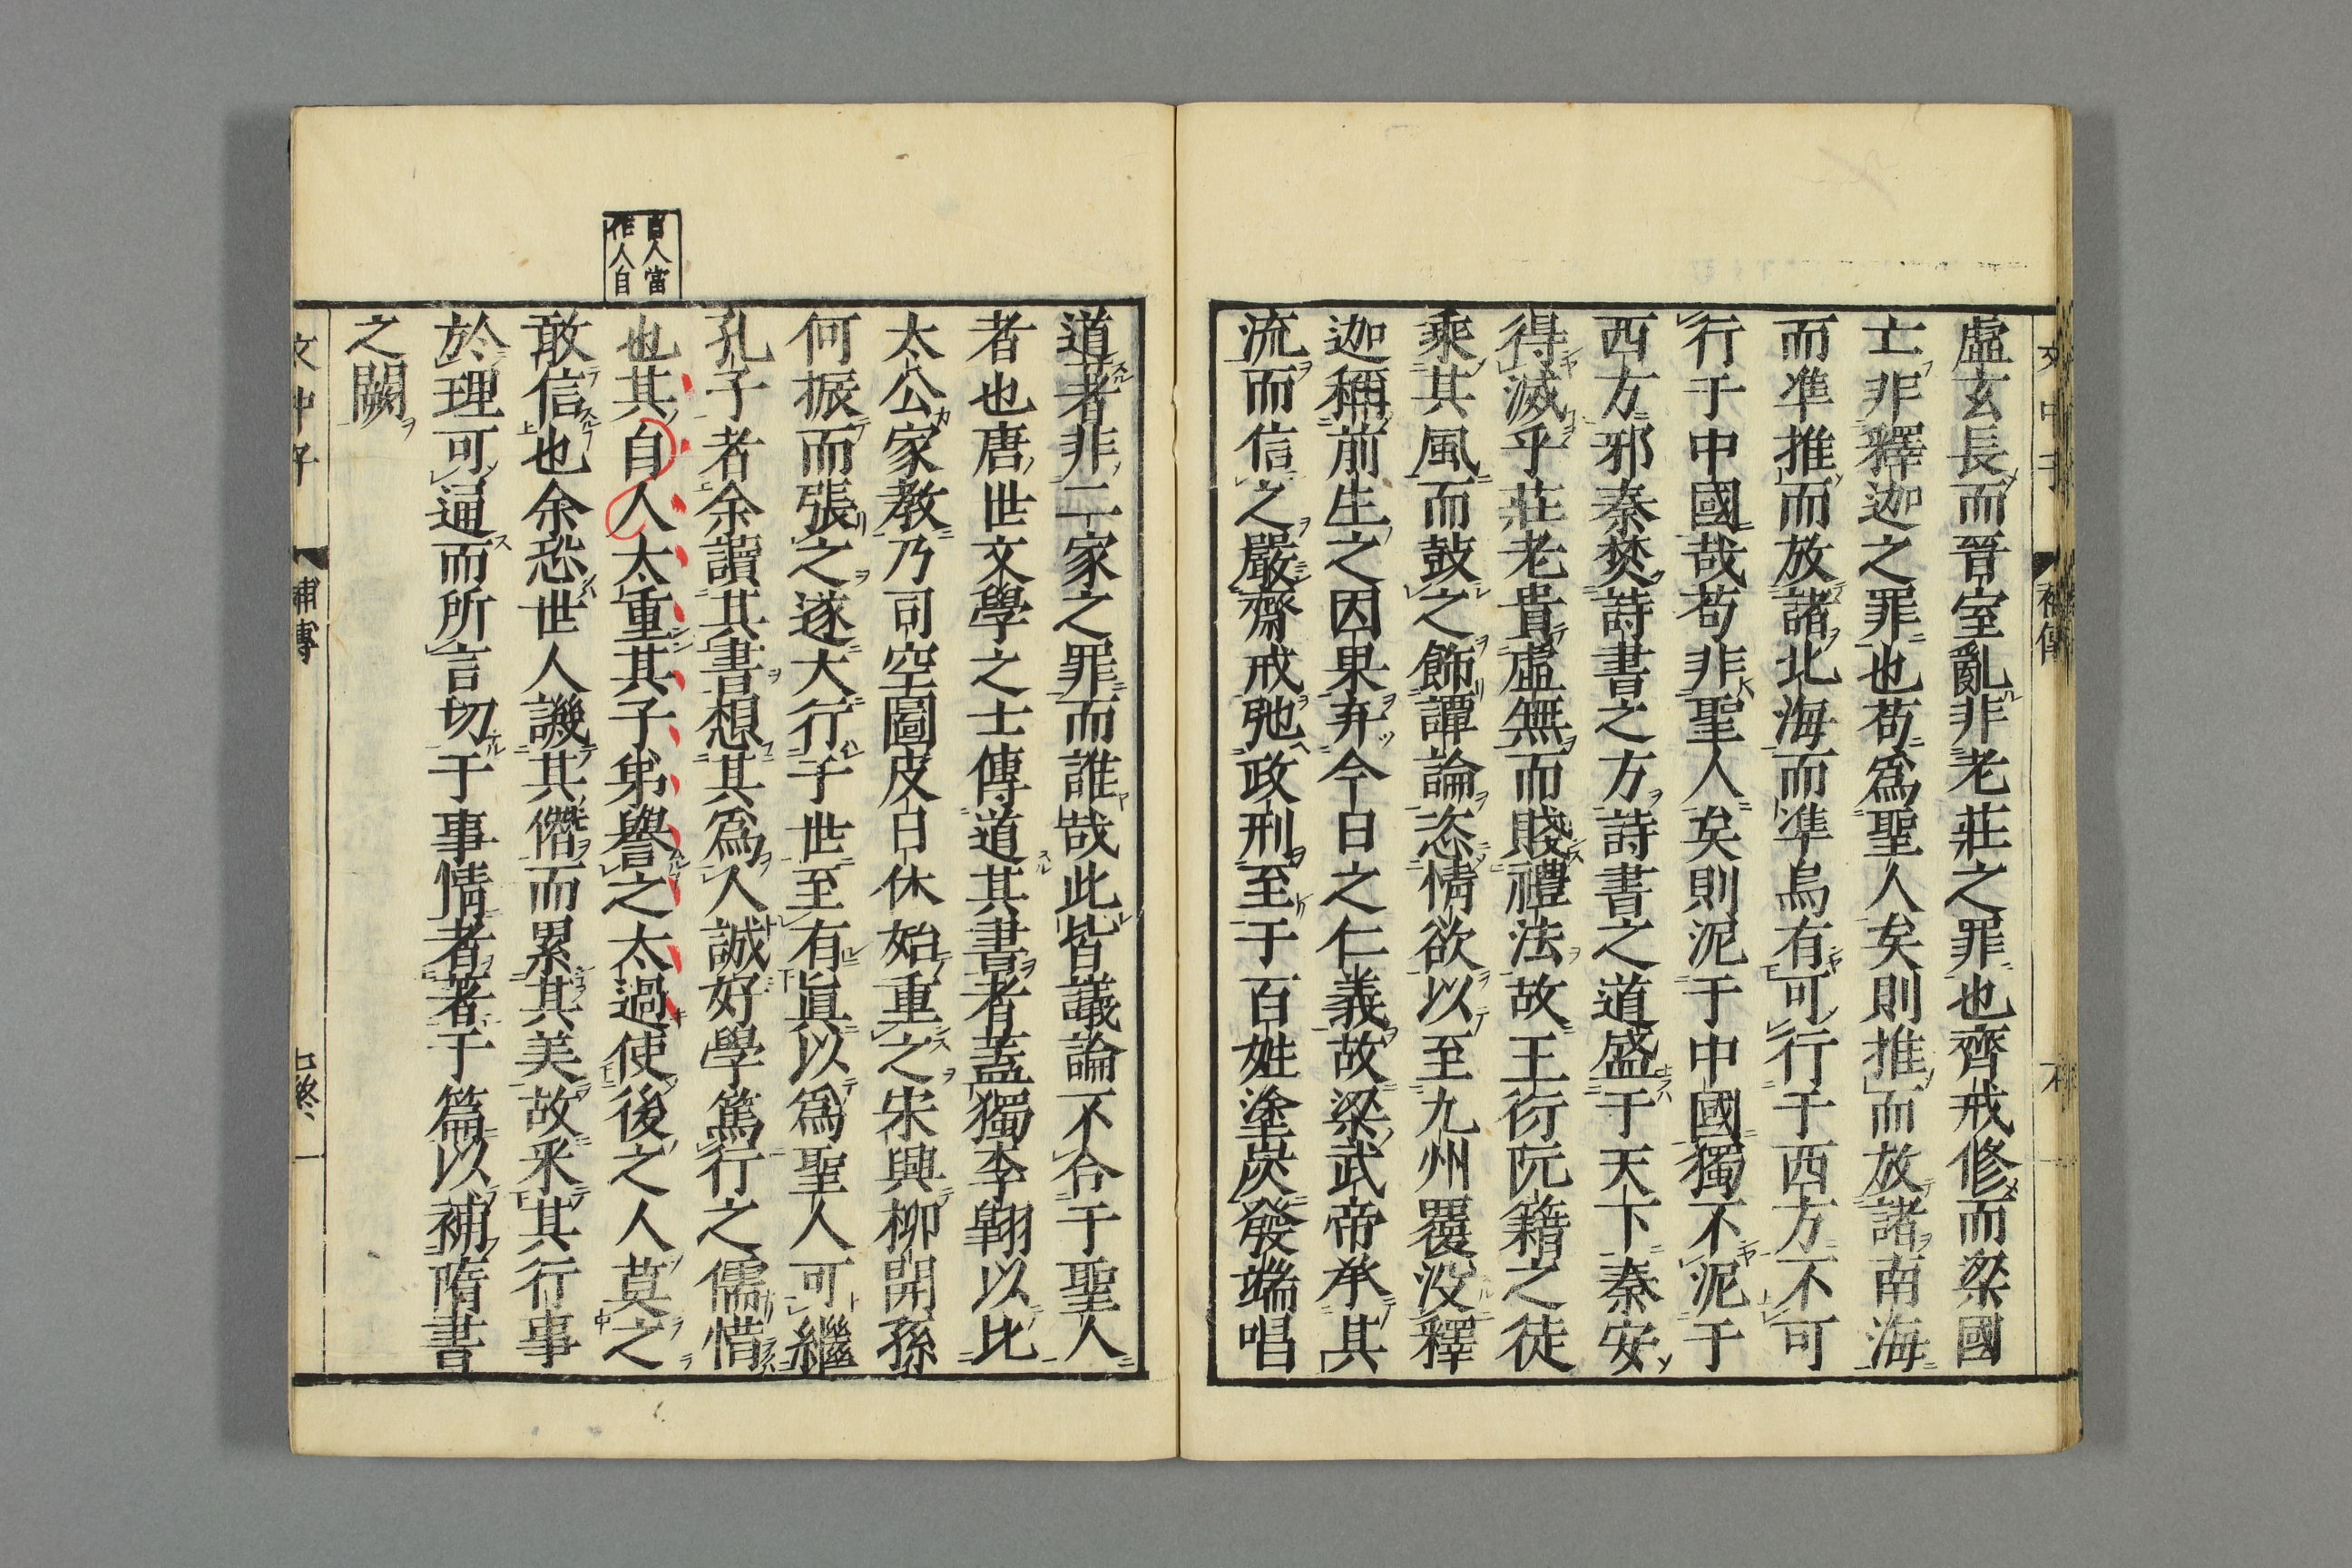 文中子 補傳
虛玄長而晉室亂非老莊之罪也齊戒修而梁國
亡非釋迦之罪也苟爲聖人矣則推而放諸南海
而準推而放諸北海而準烏有可行于西方不可
行于中國哉苟非聖人矣則泥于中國獨不泥于
西方邪秦焚詩書之方詩書之道盛于天下秦安
得滅乎莊老貴虛無而賤禮法故王衍阮籍之徒
乘其風而鼓之飾譚論恣情欲以至九州覆沒釋
迦稱前生之因果弃今日之仁義故梁武帝承其
流而信之嚴齋戒弛政刑至于百姓塗炭發端唱
道者非二家之罪而誰哉此皆議論不合于聖人
者也唐世文學之士傳道其書者蓋獨李翱以比
太公家教乃司空圖皮日休始重之宋興柳開孫
何振而張之遂大行于世至有眞以爲聖人可繼
孔子者余讀其書想其爲人誠好學篤行之儒惜
也其自人太重其子弟譽之太過使後之人莫之
敢信也余恐世人譏其僭而累其美故采其行事
於理可通而所言切于事情者著于篇以補隋書
之闕
自人當
作人自
文中子 補傳 終